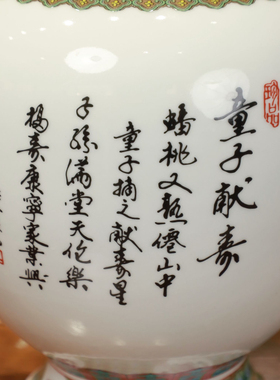 童子献寿
蟠桃又熟僊山中
童子摘之献寿星
子孫满堂天伦樂
福寿康寧家業興